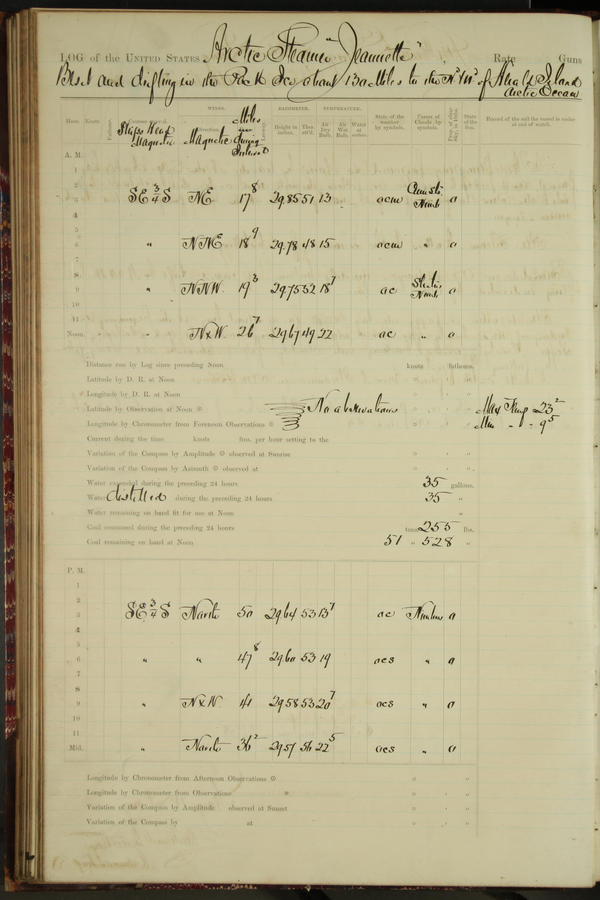 LOG of the UNITED STATES Arctic Steamer "Jeannette" Rate Guns
Beset and drifting in the Pack Ice about 130 Miles to the of Herald Island
Arctic Ocean
Hour. Knots. Fathoms. Ships Head Magnetic WINDS. Direction Magnetic Miles During Interval BAROMETER. Height in inches. Ther. att'd. TEMPERATURE. Air Dry Bulb. Air Wet Bulb. Water at surface. State of the weather by symbols. Forms of Clouds by symbols. State of the Sea. Record of the sail the vessel is under at end of watch.
A. M.
1
2
3 SE 3/4 S NE 17 8 29.85 51 13 ocm Nimb 0
4
5
6 " NNE 18 9 29.78 48 15 ocm " 0
7
8
9 " NNW. 19 3 29.75 52 18 7 oc Nimb 0
10
11
Noon. " NxW. 26 7 29.67 49 22 oc " 0
Distance run by Log since preceding Noon knots fathoms.
Latitude by D. R. at Noon ° ' "
Longitude by D. R. at Noon ° ' "
Latitude by Observation at Noon No observations Max Temp 23 2
Longitude by Chronometer from Forenoon Observations Min " " 9 5
Current during the time knots fms. per hour setting to the
Variation of the Compass by Amplitude observed at Sunrise
Variation of the Compass by Azimuth observed at
Water expended during the preceding 24 hours 35 gallons.
Water distilled during the preceding 24 hours 35 "
Water remaining on board fit for use at Noon "
Coal consumed during the preceding 24 hours tons 255 lbs.
Coal remaining on hand at Noon 51 " 528 "
P. M.
1
2
3 SE 3/4 S North 50 29.64 53 13 7 oc Nimbus 0
4
5
6 " " 47 8 29.60 53 19 ocs " 0
7
8
9 " NxW. 41 29.58 53 20 7 ocs " 0
10
11
Mid. " North 36 2 29.57 56 22 5 ocs " 0
Longitude by Chronometer from Afternoon Observations
Longitude by Chronometer from Observations
Variation of the Compass by Amplitude observed at Sunset
Variation of the Compass by at